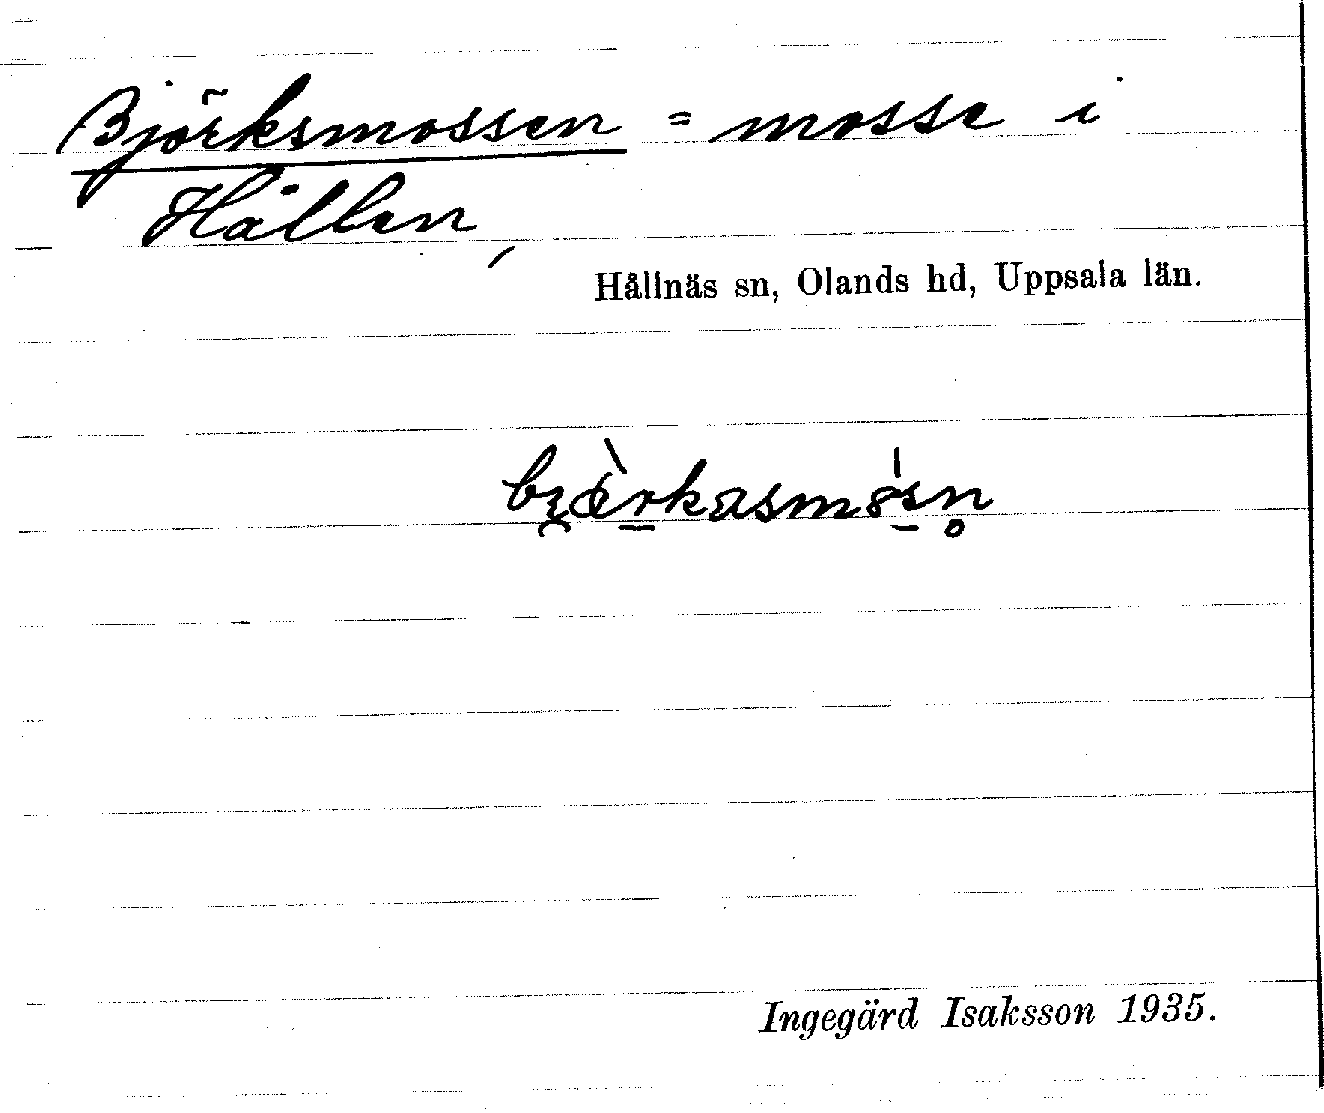 Björksmossen = mosse i
Hållen,
Hållnäs sn, Olands hd, Uppsala län.
Ingegärd Isaksson 1935.